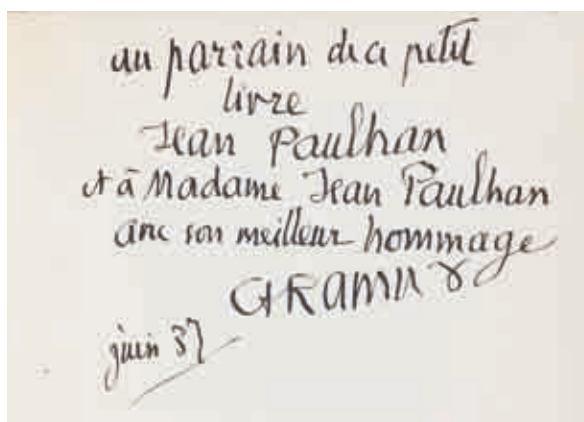 au parrain de ce petit
livre
Jean Paulhan
et à Madame Jean Paulhan
avec son meilleur hommage
CF Ramuz
juin 37